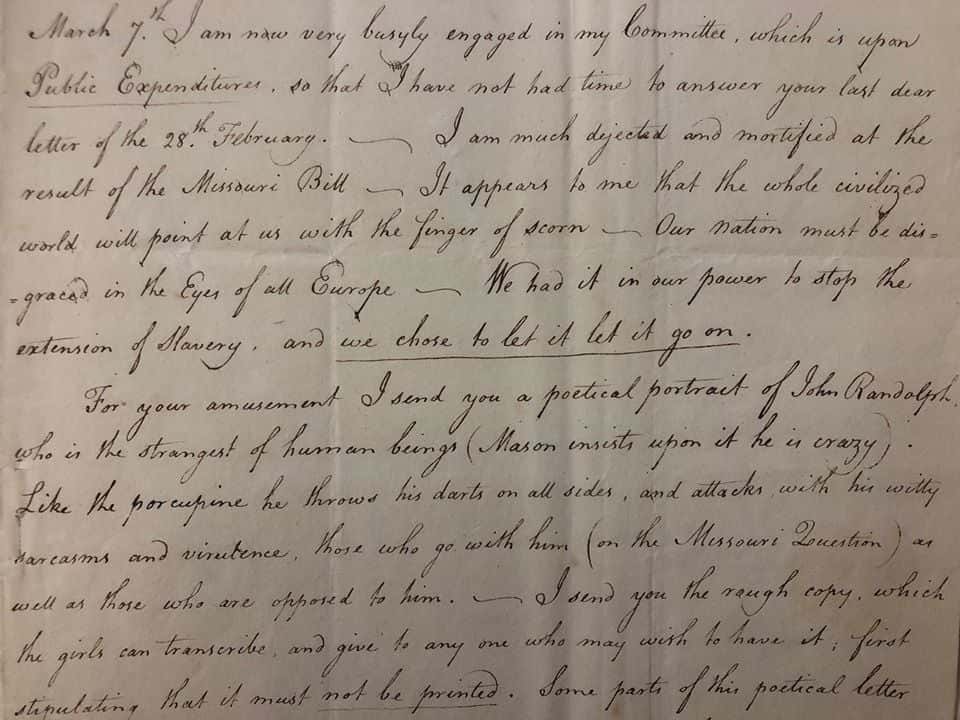 March 7.th I am now very busyly engaged in my Committee, which is upon
Public Expenditures, so that I have not had time to answer your last dear
letter of the 28.th February. — I am much dejected and mortified at the
result of the Missouri Bill — It appears to me that the whole civilized
world will point at us with the finger of scorn — Our nation must be dis=
=graced in the Eyes of all Europe — We had it in our power to stop the
extension of Slavery, and we chose to let it let it go on.
For your amusement I send you a poetical portrait of John Randolph,
who is the strangest of human beings (Mason insists upon it he is crazy).
Like the porcupine he throws his darts on all sides, and attacks with his witty
sarcasms and virulence, those who go with him (on the Missouri Question) as
well as those who are opposed to him. — I send you the rough copy, which
the girls can transcribe, and give to any one who may wish to have it; first
stipulating that it must not be printed. Some parts of this poetical letter